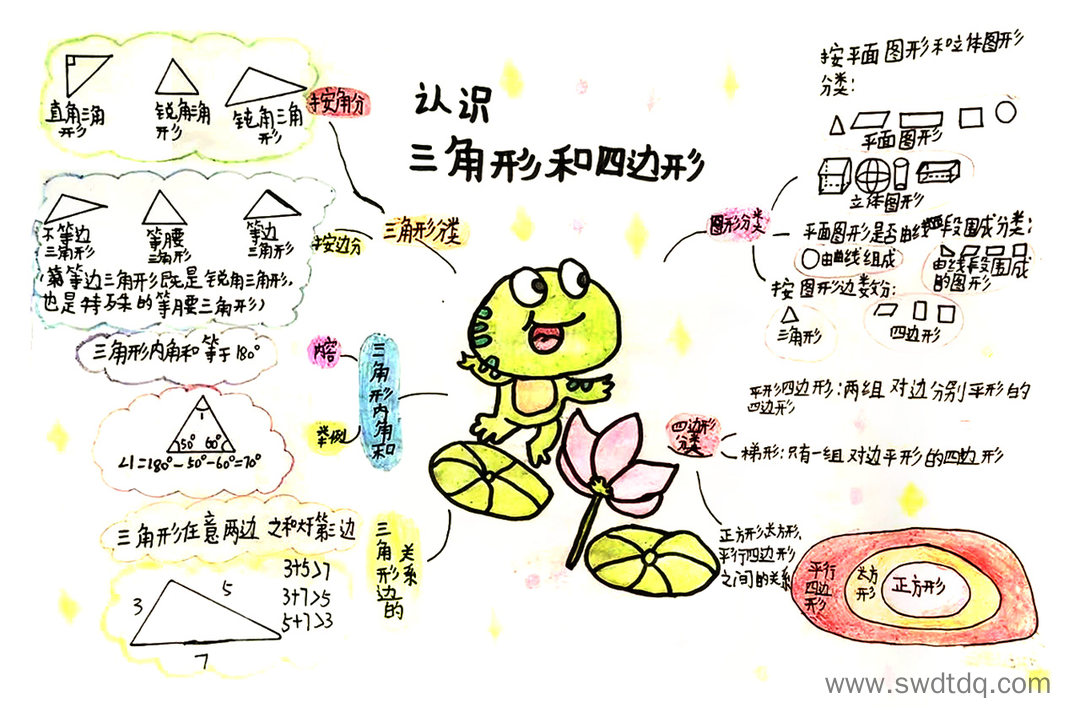 认识
三角形和四边形
按角分
直角三角
形
锐角三角
形
钝角三角
形
三角形分类
按边分
不等边
三角形
等腰
三角形
等边
三角形
等边三角形既是锐角三角形,
也是特殊的等腰三角形)
三角形内角和
内容
三角形内角和等于180°
举例
1
50° 60°
∠1=180°-50°-60°=70°
三角形边的
关系
三角形任意两边之和大于第三边
3
5
7
3+5>7
3+7>5
5+7>3
图形分类
按平面图形和立体图形
分类:
平面图形
立体图形
平面图形是否由线段围成分类:
由曲线组成
由线段围成
的图形
按图形边数分:
三角形
四边形
四边形
分类
平形四边形:两组对边分别平形的
四边形
梯形:只有一组对边平形的四边形
正方形,长方形,
平行四边形
之间的关系
平行
四边
形
长方
形
正方形
www.swdtdq.com